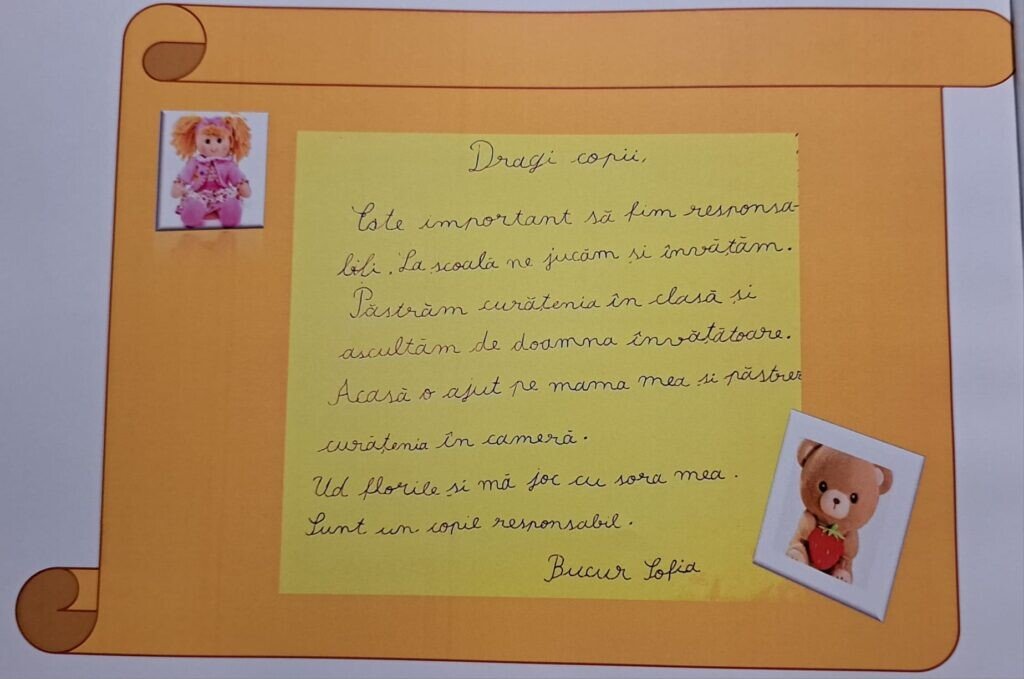 Dragi copii,
Este important să fim responsa-
bili. La școală ne jucăm și învățăm.
Păstrăm curățenia în clasă și
ascultăm de doamna învățătoare.
Acasă o ajut pe mama mea și păstrez
curățenia în cameră.
Ud florile și mă joc cu sora mea.
Sunt un copil responsabil.
Bucur Sofia